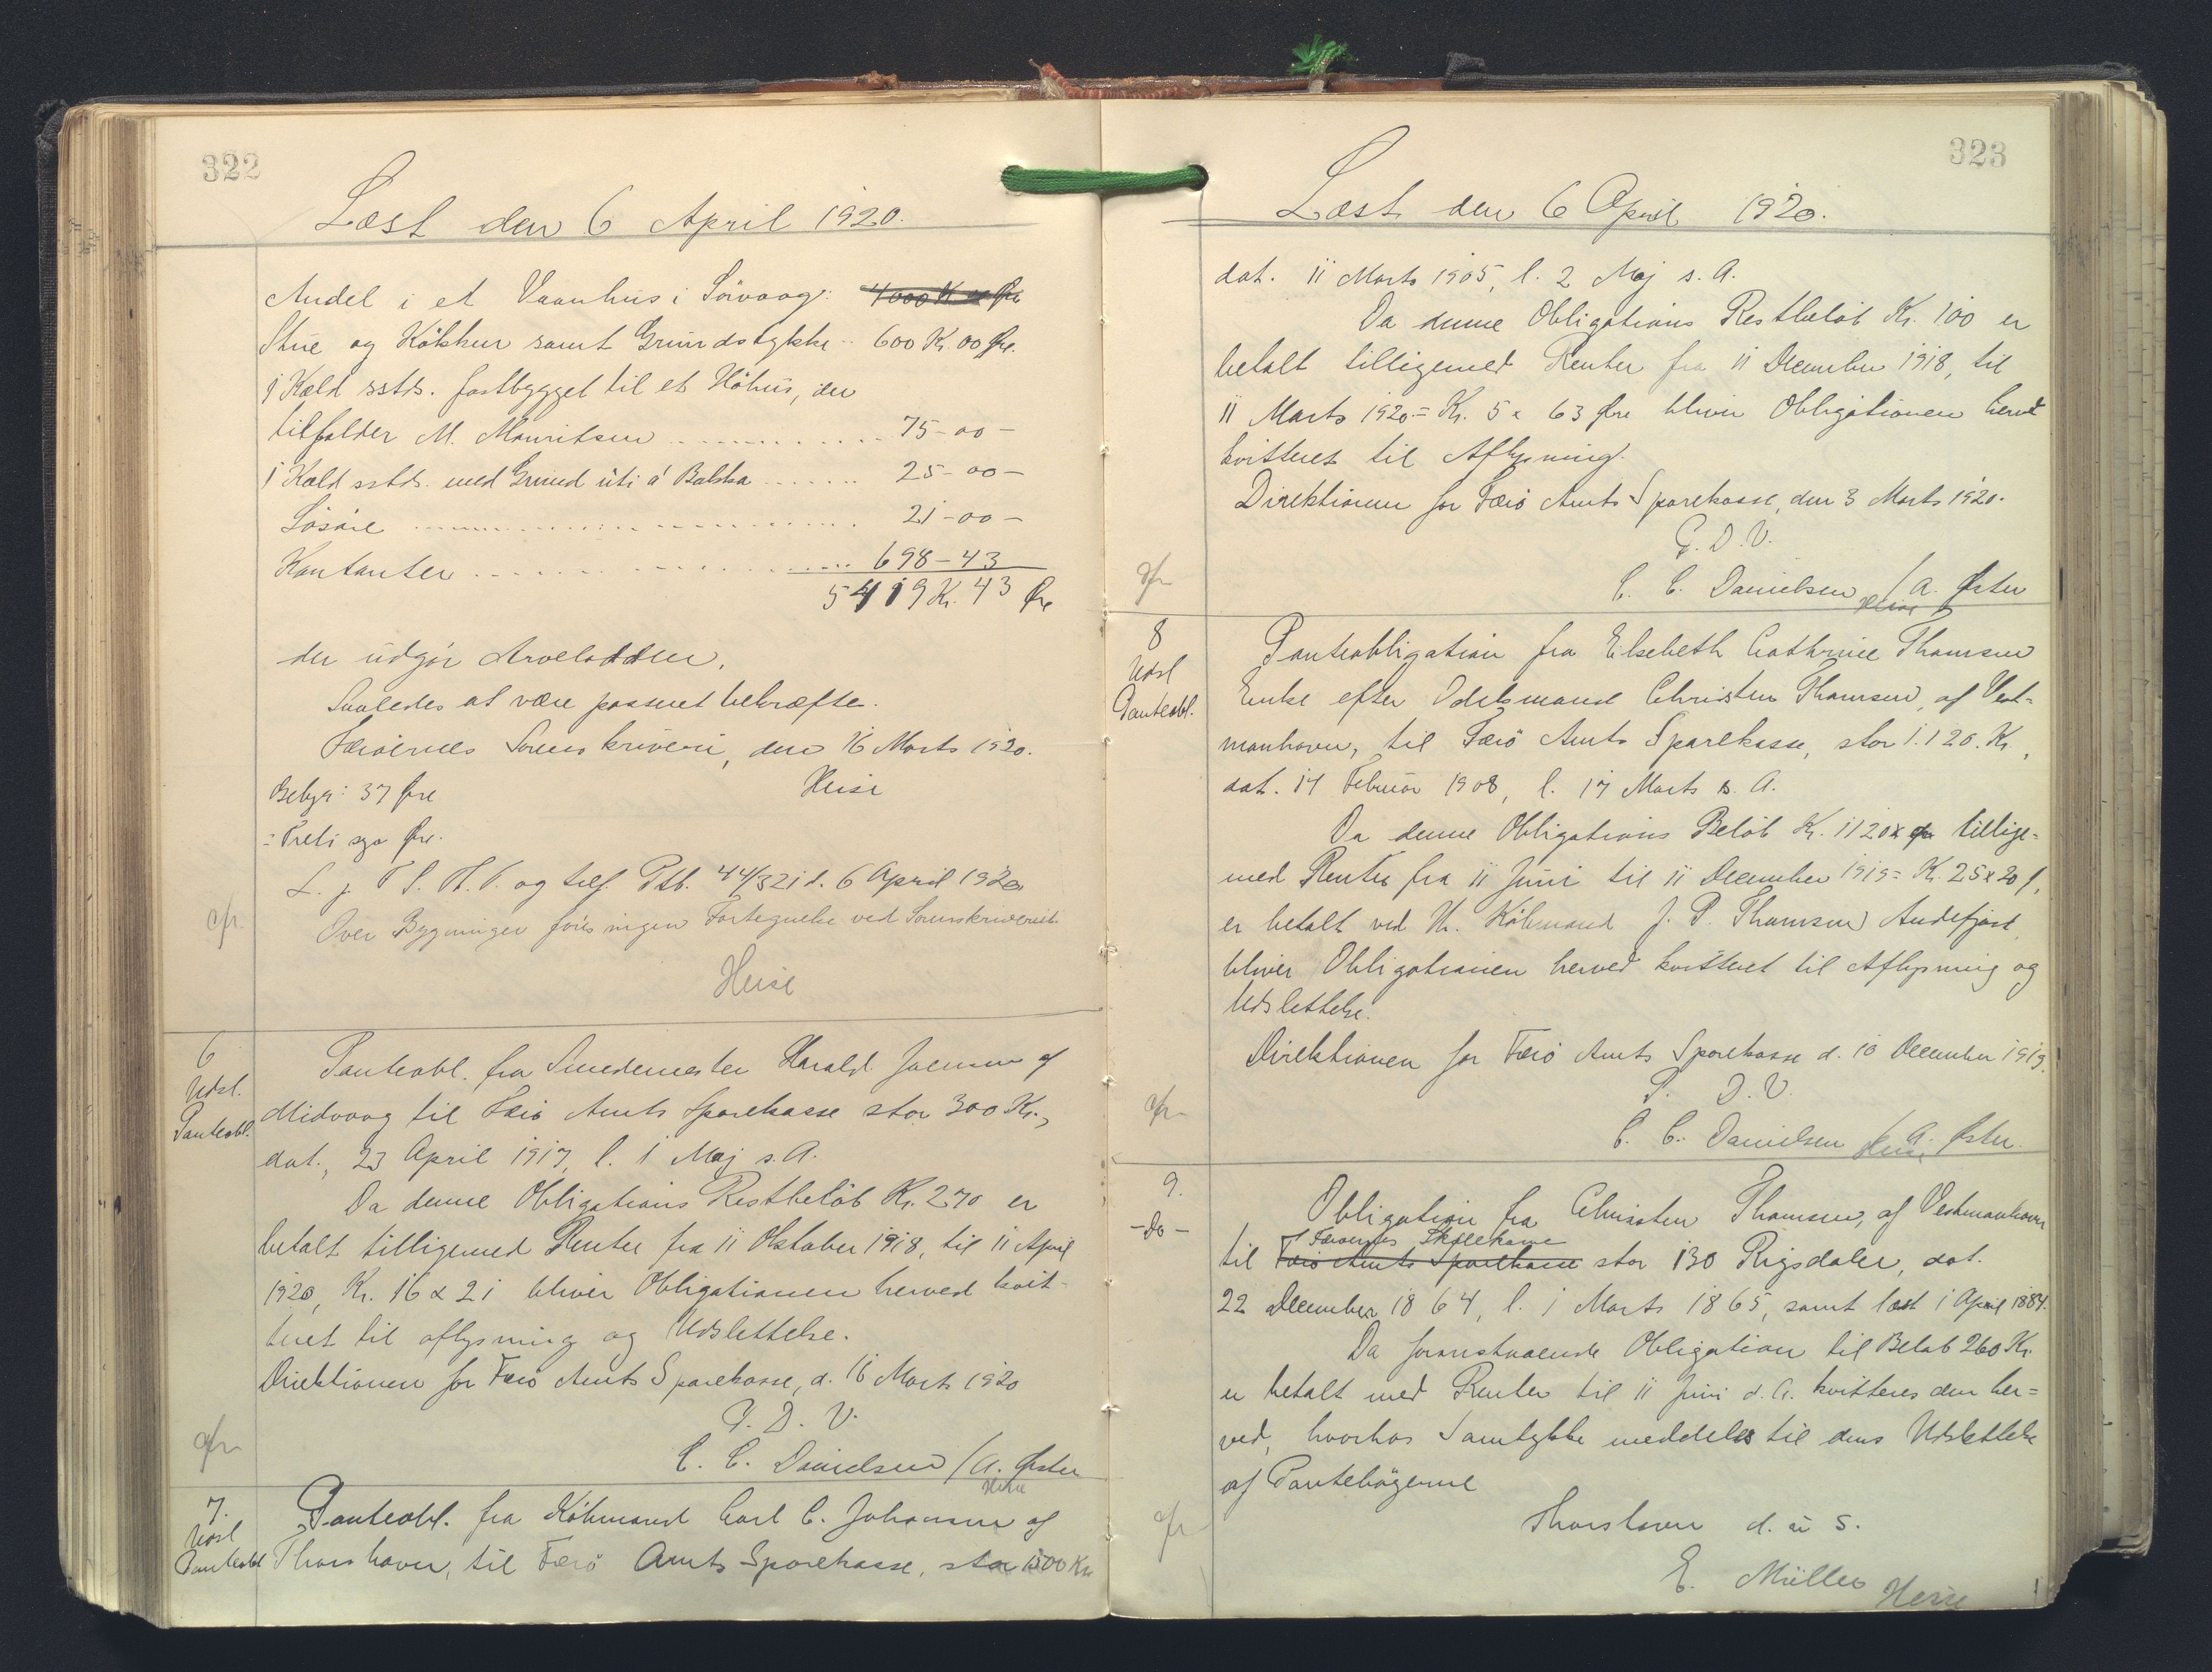 322
Læst den 6 April 1920.
Andel i et Vaanhus i Sörvaag: 4000 Kr 00 Øre
Stue og Kökken samt Grundstykke .. 600 Kr. 00 Øre.
1 Kæld sstds. fastbygget til et Höhus, der
tilfalder M. Mouritsen ............ 75-00-
1 Kæld sstds. med Grund úti á Bakka ....... 25-00-
Lösöre ............ 21-00-
Kontanter ............ 698-43
5419 Kr. 43 Øre
der udgör Arvelodden.
Saaledes at være passeret bekræfte.
Færöernes Sorenskriveri, den 16 Marts 1920.
Gebyr: 37 Øre
Heise
: Treti syv Øre.
L. j. T. S. H. P. og tilf. Ptb. 44/321 d. 6 April 1920
Over Bygninger föres ingen Fortegnelse ved Sorenskriveriet.
cfr.
Heise
6
Udsl.
Panteobl.
Panteobl. fra Smedemester Harald Joensen af
Midvaag til Færö Amts Sparekasse stor 300 Kr.,
dat., 23 April 1917, l. 1 Maj s. A.
Da denne Obligations Restbelöb Kr. 270 er
betalt tilligemed Renter fra 11 Oktober 1918, til 11 April
1920, Kr. 16 x 21 bliver Obligationen herved kvit-
teret til aflysning og Udslettelse.
Direktionen for Færö Amts Sparekasse, d. 16 Marts 1920
P. D. V.
cfr
C. C. Danielsen / A. Øster
Heise
7.
Udsl
Panteobl
Panteobl. fra Köbmand Carl C. Johansen af
Thorshavn, til Færö Amts Sparekasse, stor 1500 Kr
323
Læst den 6 April 1920.
dat. 11 Marts 1905, l. 2 Maj s. A.
Da denne Obligations Restbelöb Kr. 100 er
betalt tilligemed Renter fra 11 December 1918, til
11 Marts 1920 = Kr. 5 x 63 Øre bliver Obligationen herved
kvitteret til Aflysning.
Direktionen for Færö Amts Sparekasse, den 3 Marts 1920.
P. D. V.
cfr
C. C. Danielsen / A. Øster
Heise
8
Udsl
Panteobl.
Panteobligation fra Elsebeth Cathrine Thomsen
Enke efter Odelsmand Christen Thomsen, af Vest-
manhavn, til Færö Amts Sparekasse, stor 1.120. Kr.,
dat. 14 Februar 1908, l. 17 Marts s. A.
Da denne Obligations Belöb Kr. 1120 x tillige-
med Renter fra 11 Juni til 11 December 1919 = Kr. 25 x 20 ,
er betalt ved Hr. Köbmand J. P. Thomsen Andefjord,
bliver Obligationen herved kvitteret til Aflysning og
Udslettelse.
Direktionen for Færö Amts Sparekasse d. 10 December 1919.
P. D. V.
cfr
C. C. Danielsen / A. Øster.
Heise
9.
-Do-
Obligation fra Christen Thomsen, af Vestmanhavn
Færoernes Skolekasse
til Færö Amts Sparekasse stor 130 Rigsdaler, dat.
22 December 1864, l. 1 Marts 1865, samt læst 1 April 1884.
Da foranstaaende Obligation til Belöb 260 Kr.
er betalt med Renter til 11 Juni d. A. kvitteres den her=
ved, hvorhos Samtykke meddeles til dens Udslettelse
af Pantebögerne
Thorshavn d. u s.
cfr
E. Müller
Heise